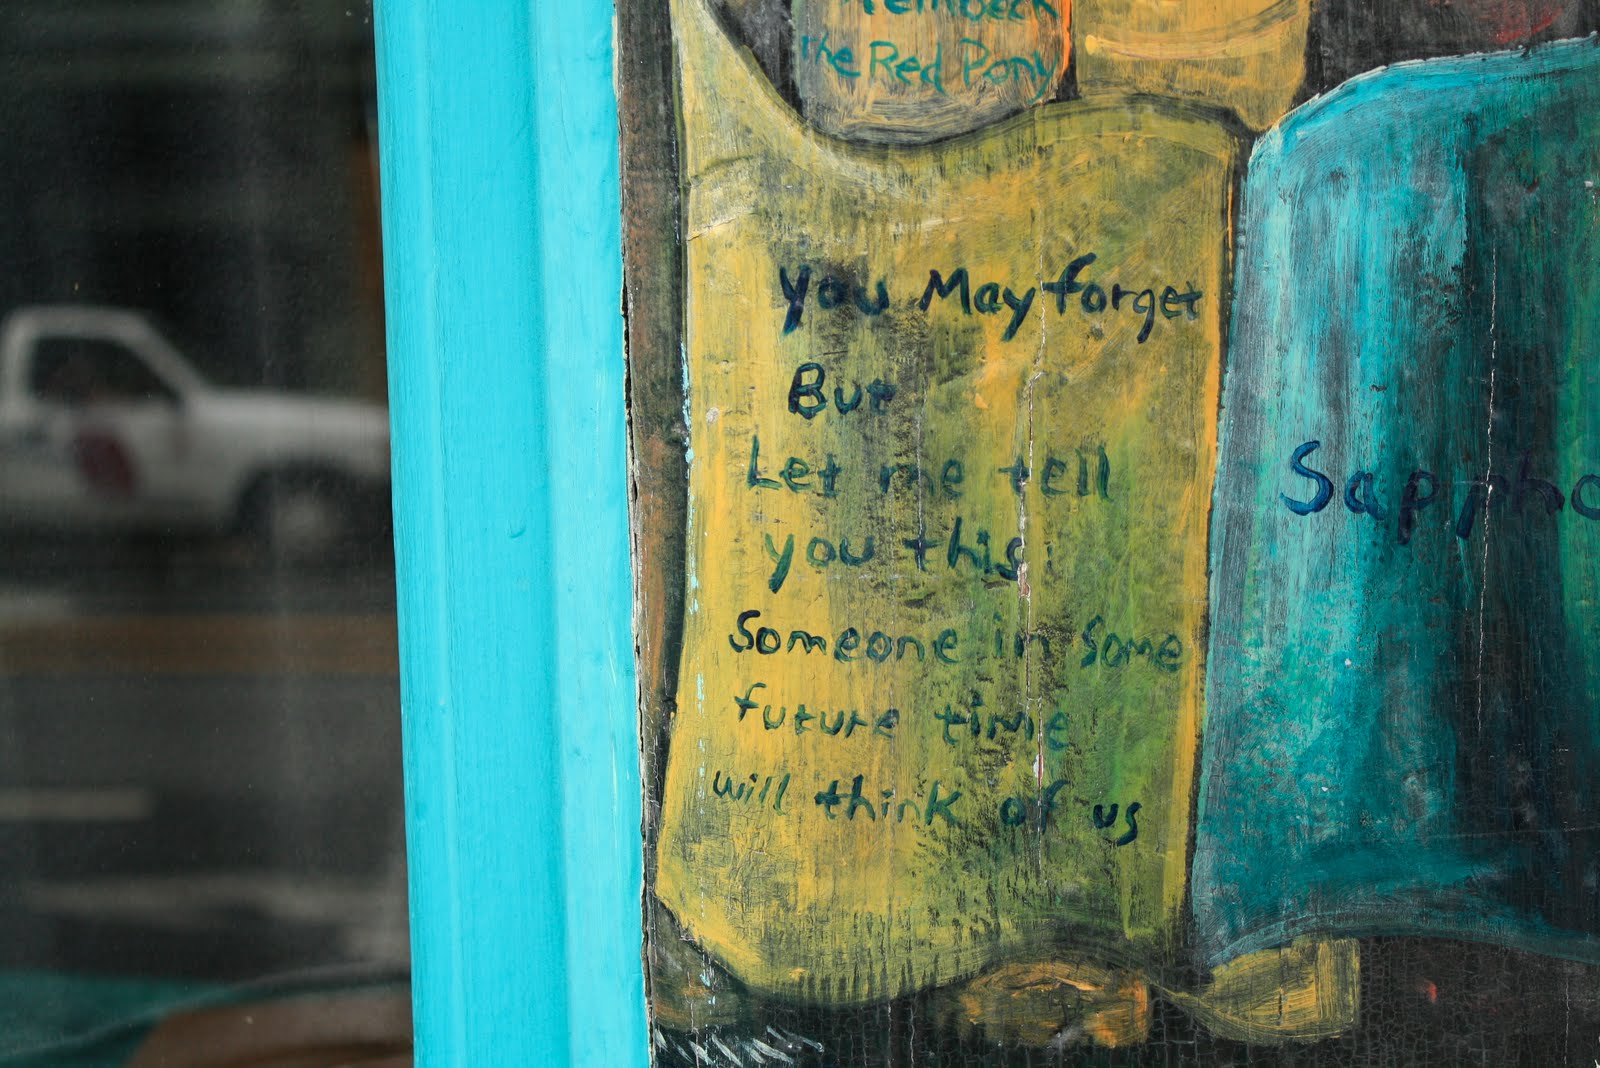 the Red Pony
You May forget
But
Let me tell
you this:
Someone in some
future time
will think of us
Sappho